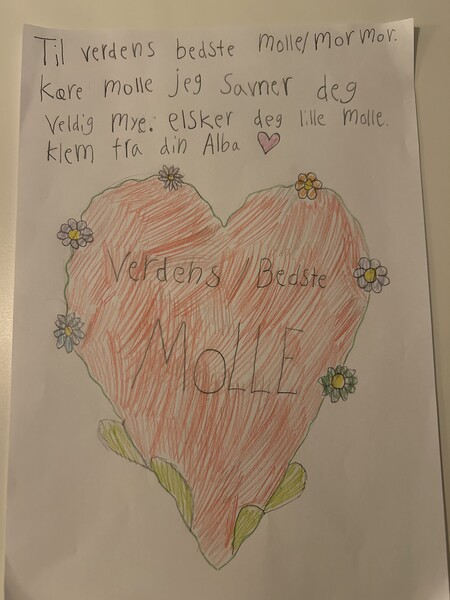 Til verdens bedste molle/mormor.
Kære molle jeg Savner deg
Veldig mye. elsker deg lille molle.
klem fra din Alba
Verdens / Bedste
MOLLE